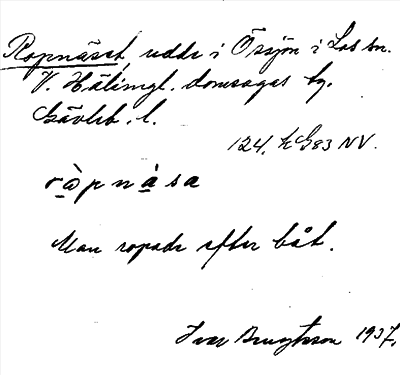 Ropnäset, udde i Örsjön i Los sn.
V. Hälsingl. domsagas tg.
Gävleb. l.
124. h G83 NV.
ròpnàsa
Man ropade efter båt.
Ivar Bengtsson 1937.